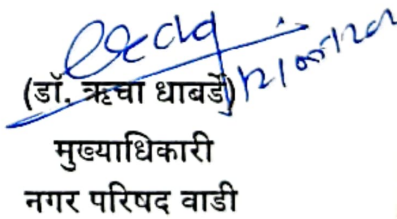 (डॉ. ऋचा धाबर्डे)
मुख्याधिकारी
नगर परिषद वाडी